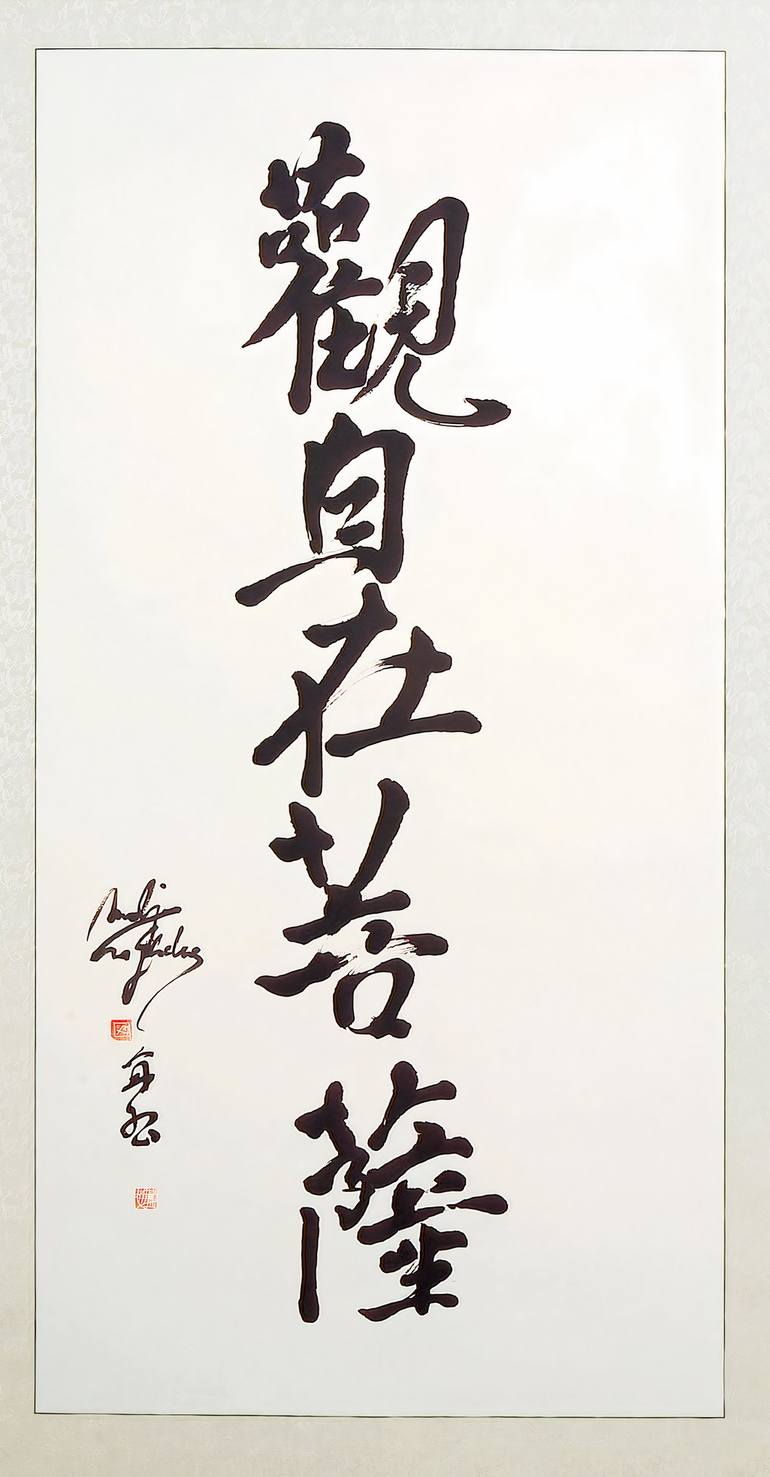 觀自在菩薩